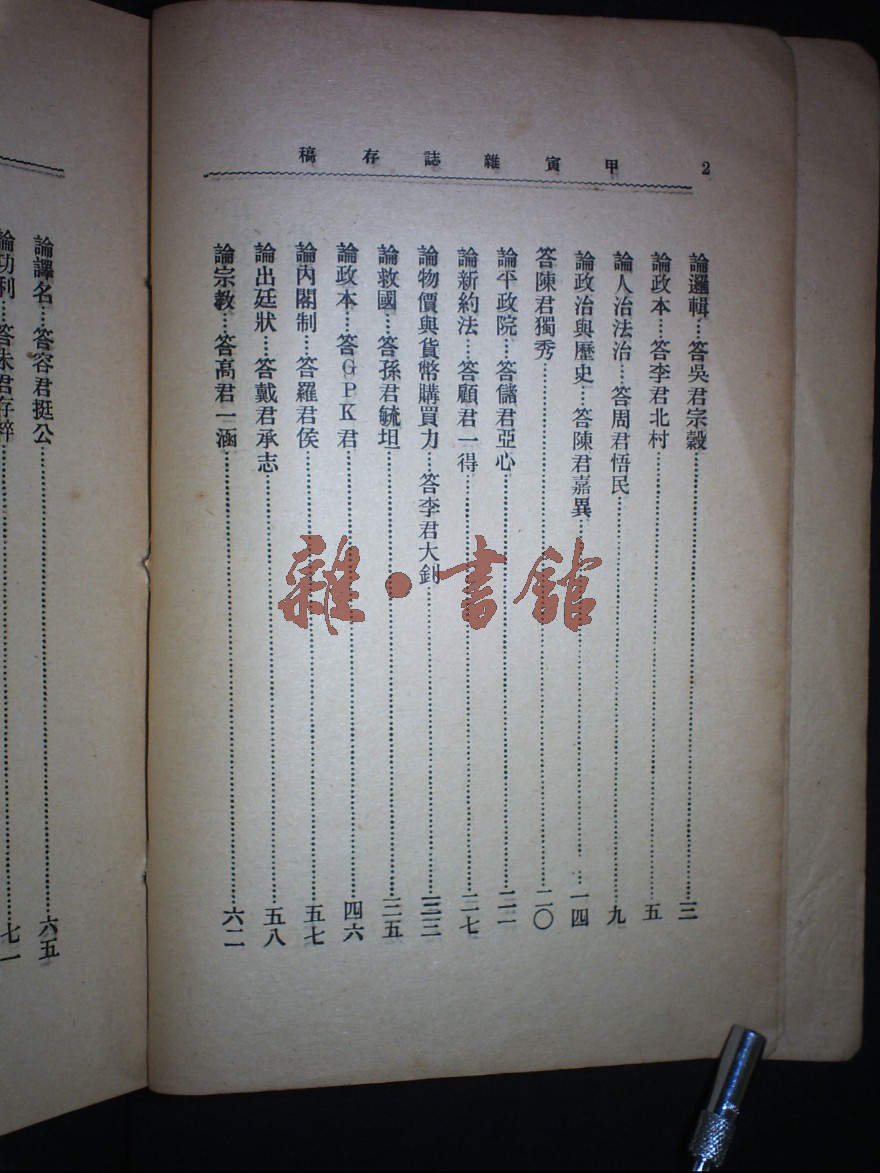 2 甲寅雜誌存稿
論邏輯…答吳君宗穀……三
論政本…答李君北村……五
論人治法治…答周君悟民……九
論政治與歷史…答陳君嘉異……一四
答陳君獨秀……二〇
論平政院…答儲君亞心……二一
論新約法…答顧君一得……二七
論物價與貨幣購買力…答李君大釗……三三
論救國…答孫君毓坦……三五
論政本…答GPK君……四六
論內閣制…答羅君侯……五七
論出廷狀…答戴君承志……五八
論宗教…答高君一涵……六二
論譯名…答容君挺公……六五
論功利…答朱君存粹……七一
雜·書館